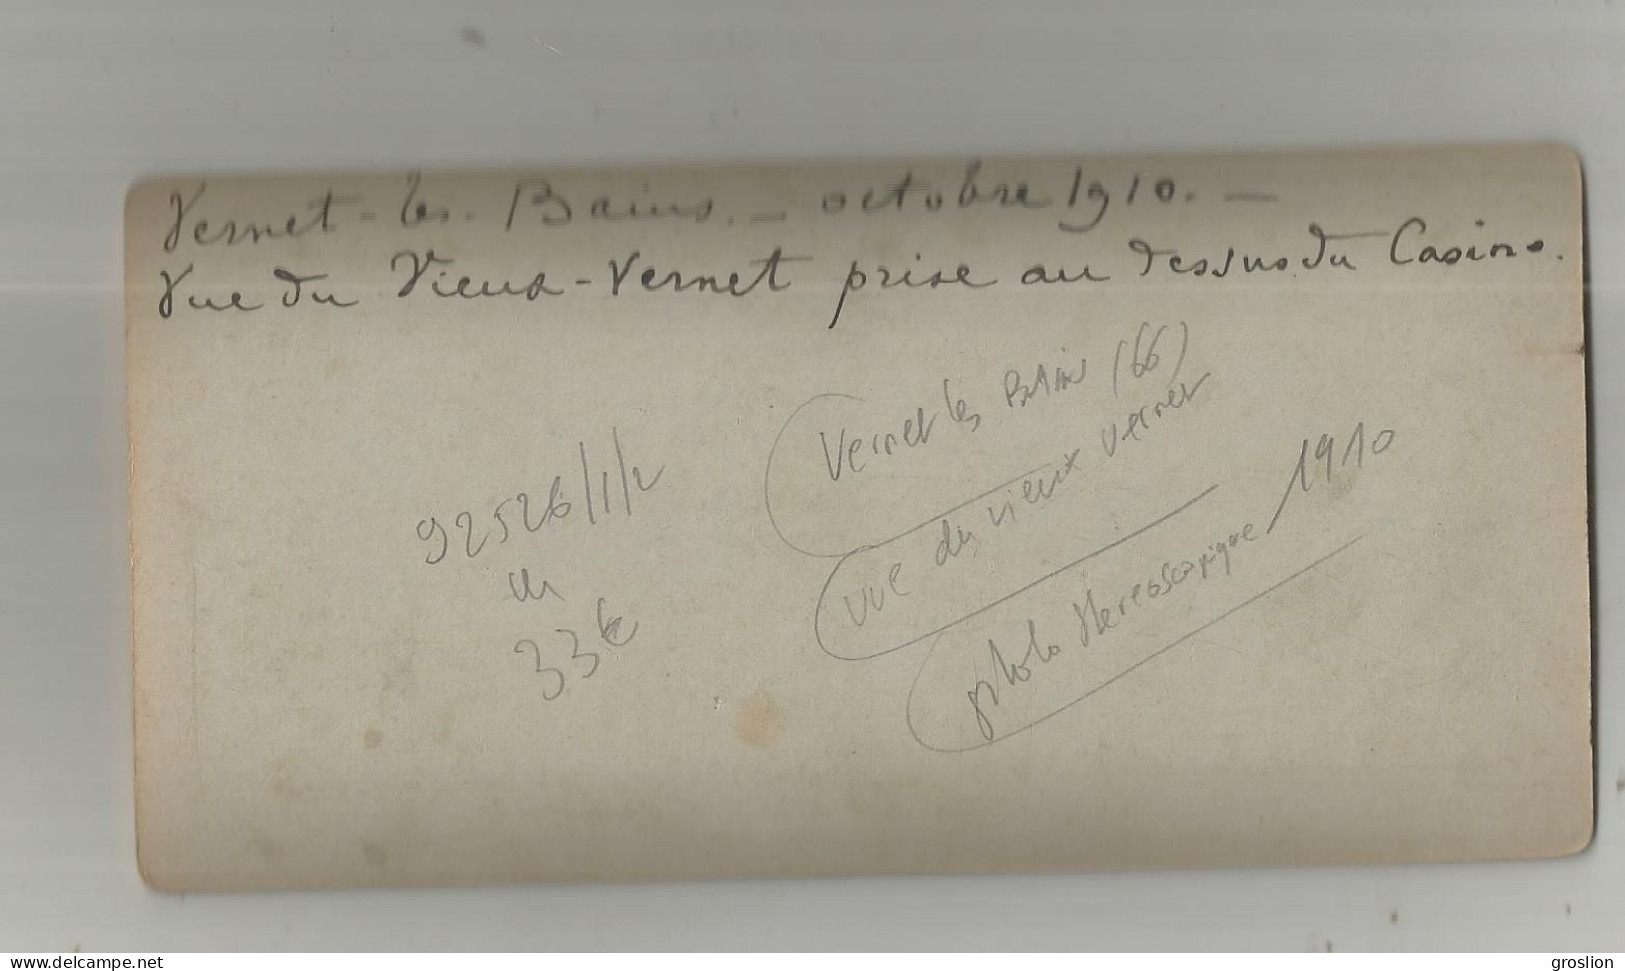 Vernet-les-Bains. – octobre 1910. –
Vue du Vieux-Vernet prise au dessus du Casino.
Vernet les Bains (66)
vue du vieux vernet
photo stereoscopique 1910
92526/1/2
33€
www.delcampe.net
groslion